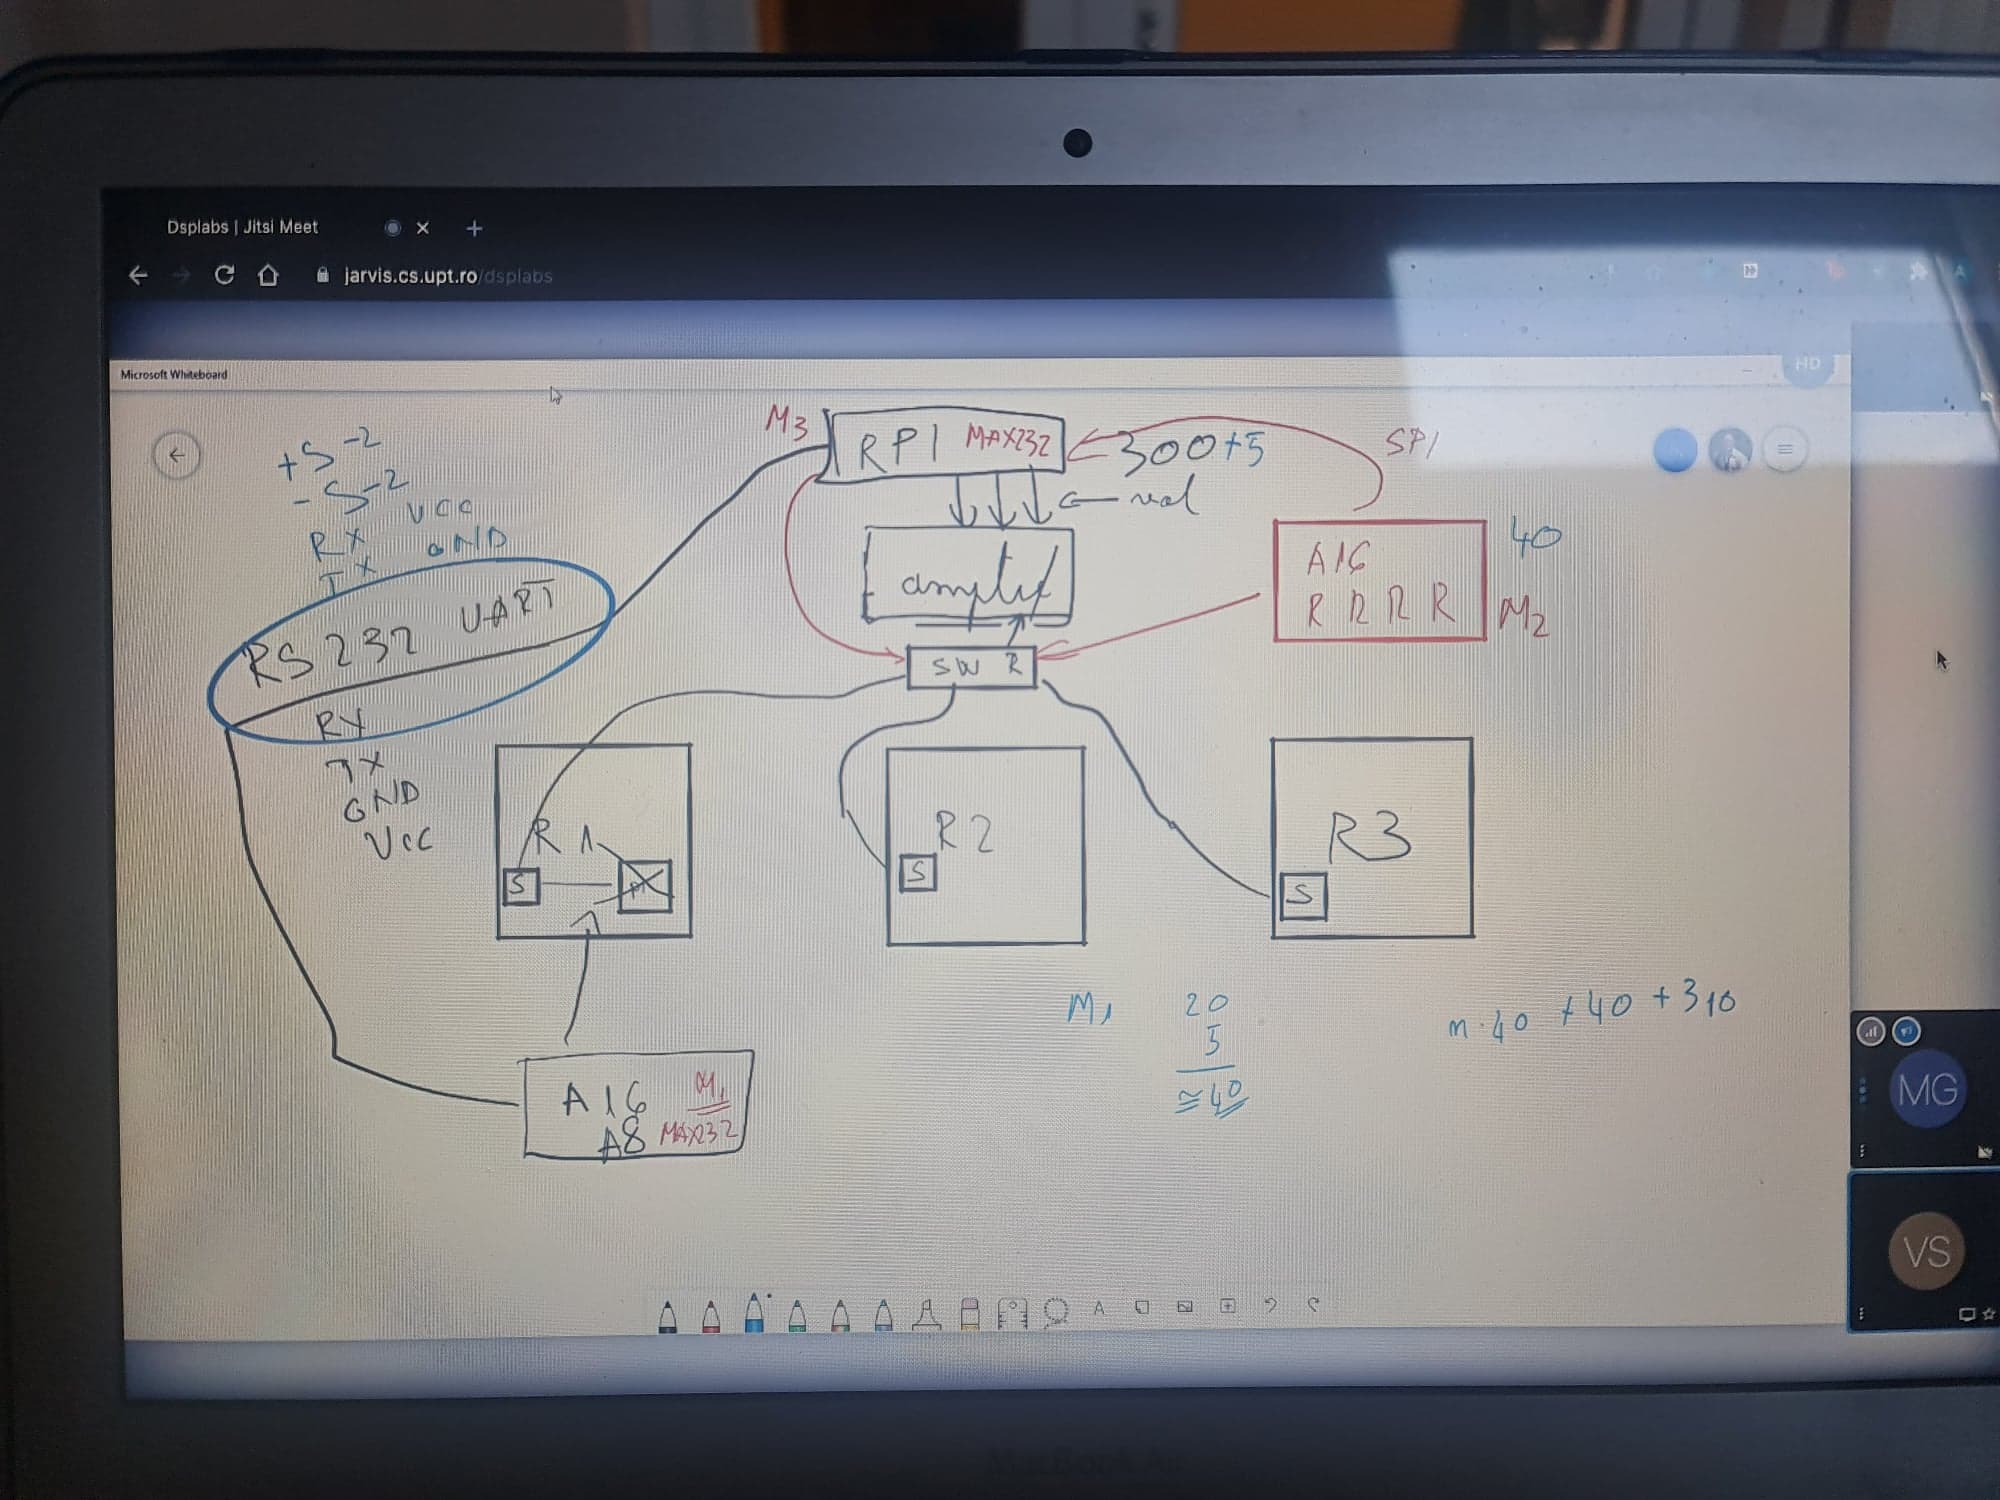 Dsplabs | Jitsi Meet
jarvis.cs.upt.ro/dsplabs
Microsoft Whiteboard
HD
+S -2
-S -2
RX VCC
TX GND
RS232 UART
RX
TX
GND
VCC
M3
RPI MAX232
300+5
SPI
amplif
SW R
A16
R R R R
40
M2
R1
S
R2
S
R3
S
A16 M1
A8 MAX232
M1
20
5
≅ 40
m·40 + 40 + 310
MG
VS